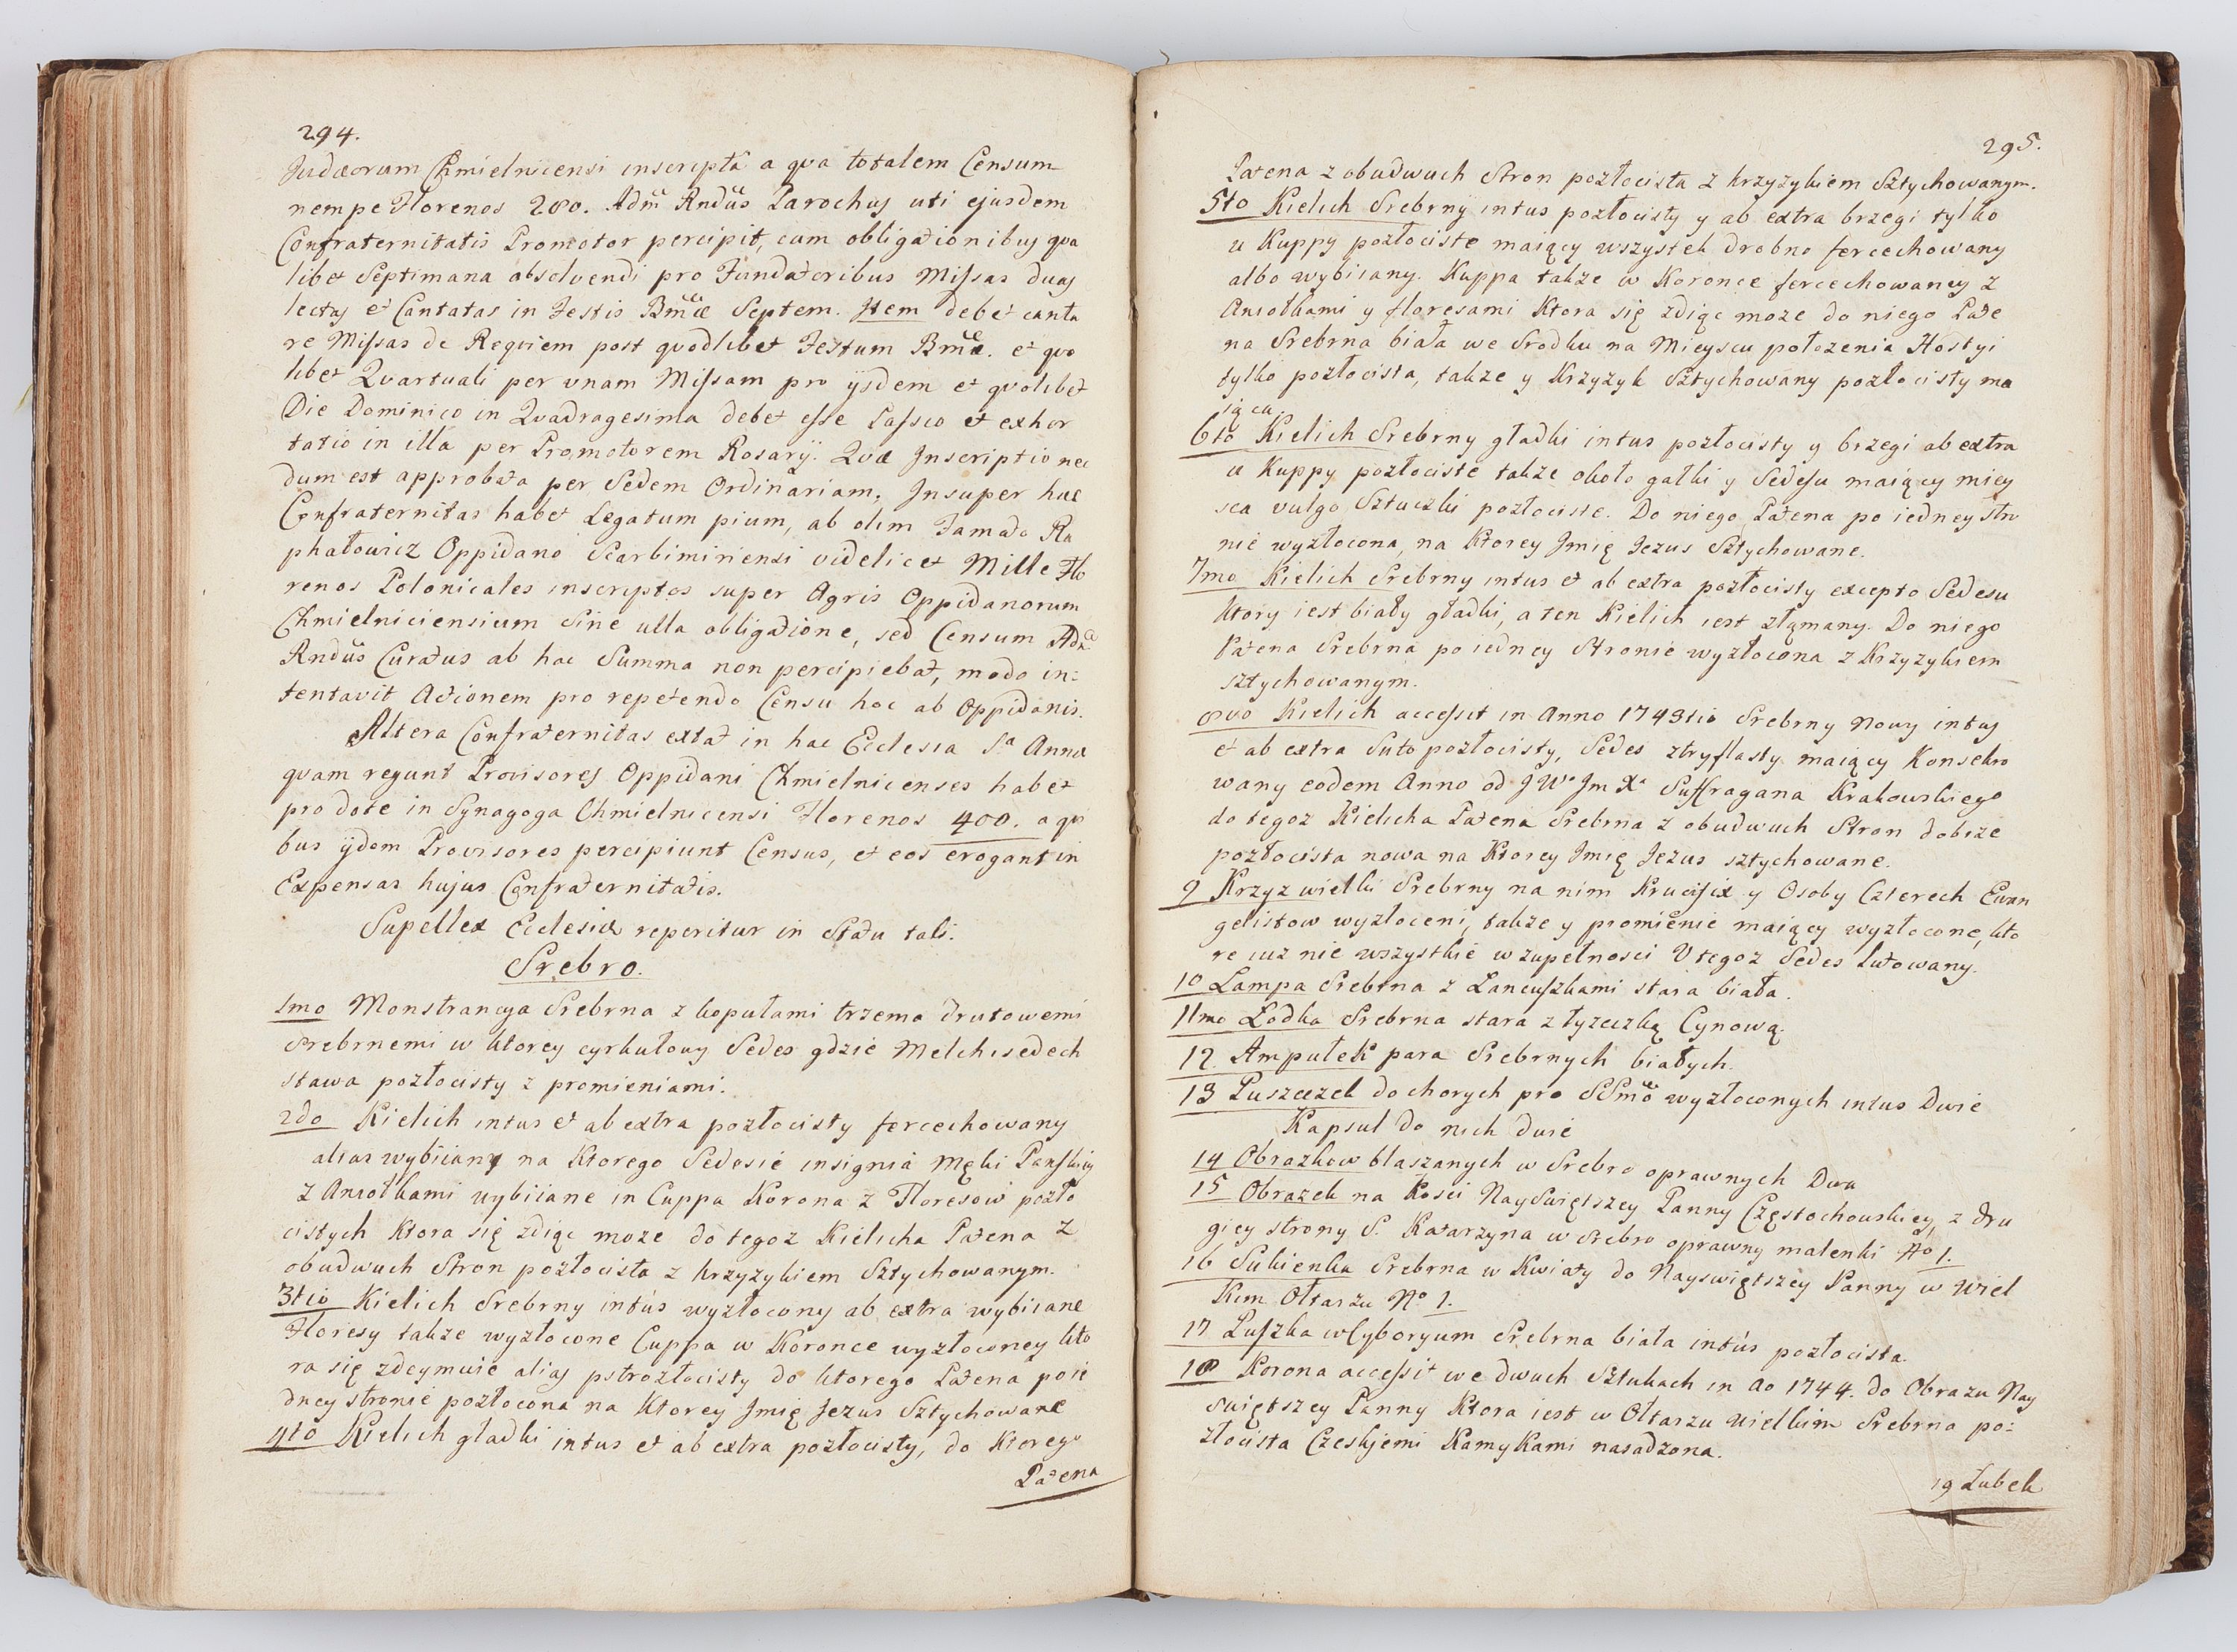 294.
Judæorum Chmielnicensi inscripta a qva totalem Censum
nempe Florenos 280. Admˢ Rndũs Parochus uti ejusdem
Confraternitatis Promotor percipit, cum obligationibus qva
libet Septimana absolvendi pro Fundatoribus Missas duas
lectas et Cantatas in Festis Bmæ Septem. Item debet canta
re Missas de Reqviem post qvodlibet Festum Bmæ. et qvo
libet Qvartuali per vnam Missam pro ijsdem et qvolibet
Die Dominico in Qvadragesima debet esse Passio et exhor
tatio in illa per Promotorem Rosarij. Qvæ Inscriptio nec
dum est approbata per Sedem Ordinariam. Insuper hæc
Confraternitas habet Legatum pium, ab olim Famato Ra
phałowicz Oppidano Scarbimiriensi videlicet Mille Flo
renos Polonicales inscriptos super Agris Oppidanorum
Chmielniciensium Sine ulla obligatione, sed Censum Adm
Rndũs Curatus ab hac Summa non percipiebat, modo in=
tentavit Actionem pro repetendo Censu hoc ab Oppidanis.
Altera Confraternitas extat in hac Ecclesia Sᵃ Annæ
qvam regunt Provisores Oppidani Chmielnicenses habet
pro dote in Synagoga Chmielnicensi Florenos 400. a qvi
bus ijdem Provisores percipiunt Census, et eos erogant in
Expensas hujus Confraternitatis.
Supellex Ecclesiæ reperitur in Statu tali.
Srebro.
1mo Monstrancya Srebrna z kopułami trzema drutowemi
Srebrnemi w ktorey cyrkułowy Sedes gdzie Melchisedech
stawa pozłocisty z promieniami.
2do Kielich intus et ab extra pozłocisty fercechowany
alias wybiiany na Ktorego Sedesie insignia Męki Panskiey
z Aniołkami wybiiane in Cuppa Korona z Floresow pozło
cistych Ktora się zdiąc moze do tegoz Kielicha Patena z
obudwuch Stron pozłocista z krzyzykiem Sztychowanym.
3tio Kielich Srebrny intus wyzłocony ab extra wybiiane
Floresy takze wyzłocone Cuppa w Koronce wyzłoconey kto
ra się zdeymuie alias pstrozłocisty do ktorego Patena poie
dney stronie pozłocona na Ktorey Jmię Jezus Sztychowane
4to Kielich gładki intus et ab extra pozłocisty, do Ktorego
Patena
295.
Patena z obudwuch Stron pozłocista z krzyzykiem Sztychowanym.
5to Kielich Srebrny intus pozłocisty y ab extra brzegi tylko
u Kuppy pozłociste maiący wszystek drobno fercechowany
albo wybiiany. Kuppa takze w Koronce fercechowaney z
Aniołkami y floresami Ktora się zdiąc moze do niego Pate
na Srebrna biała we Srodku na Mieyscu połozenia Hostyi
tylko pozłocista, takze y Krzyzyk Sztychowany pozłocisty ma
iąca.
6to Kielich Srebrny gładki intus pozłocisty y brzegi ab extra
u Kuppy pozłociste takze około gałki y Sedesu maiący miey
sca vulgo Sztuczki pozłociste. Do niego Patena po iedney stro
nie wyzłocona, na Ktorey Jmię Jezus Sztychowane.
7mo Kielich Srebrny intus et ab extra pozłocisty excepto Sedesu
ktory iest biały gładki, a ten Kielich iest złąmany. Do niego
Patena Srebrna po iedney Stronie wyzłocona z Krzyzykiem
sztychowanym.
8vo Kielich accessit in Anno 1743tio Srebrny Nowy intus
et ab extra Suto pozłocisty, Sedes ztryflasty maiący Konsekro
wany eodem Anno od J Wᵒ Jm Xᵃ Suffragana Krakowskiego
do tegoz Kielicha Patena Srebrna z obudwuch Stron dobrze
pozłocista nowa na Ktorey Jmię Jezus sztychowane.
9 Krzyz wielki Srebrny na nim Krucifix y Osoby Czterech Ewan
gelistow wyzłoceni, takze y promienie maiący wyzłocone, kto
re iuz nie wszystkie w zupełnosci V tegoz Sedes Lutowany.
10 Lampa Srebrna z Łancuszkami stara biała.
11mo Łodka Srebrna stara z łyzeczką Cynową.
12. Ampułek para Srebrnych białych.
13 Puszeczek do chorych pro SSmo wyzłoconych intus Dwie
Kapsul do nich dwie
14 Obrazkow blaszanych w Srebro oprawnych Dwa
15 Obrazek na Kosci NaySwiętszey Panny Częstochowskiey, z dru
giey strony S. Katarzyna w srebro oprawny malenki Nᵒ 1.
16 Sukienka Srebrna w Kwiaty do Nayswiętszey Panny w Wiel
Kim Ołtarzu Nᵒ 1.
17 Puszka w Cyboryum Srebrna biała intus pozłocista.
18 Korona accessit we dwuch Sztukach in Ao 1744. do Obrazu Nay
swiętszey Panny Ktora iest w Ołtarzu wielkim Srebrna po=
złocista Czeskjemi KamyKami nasadzona.
19 Łubek